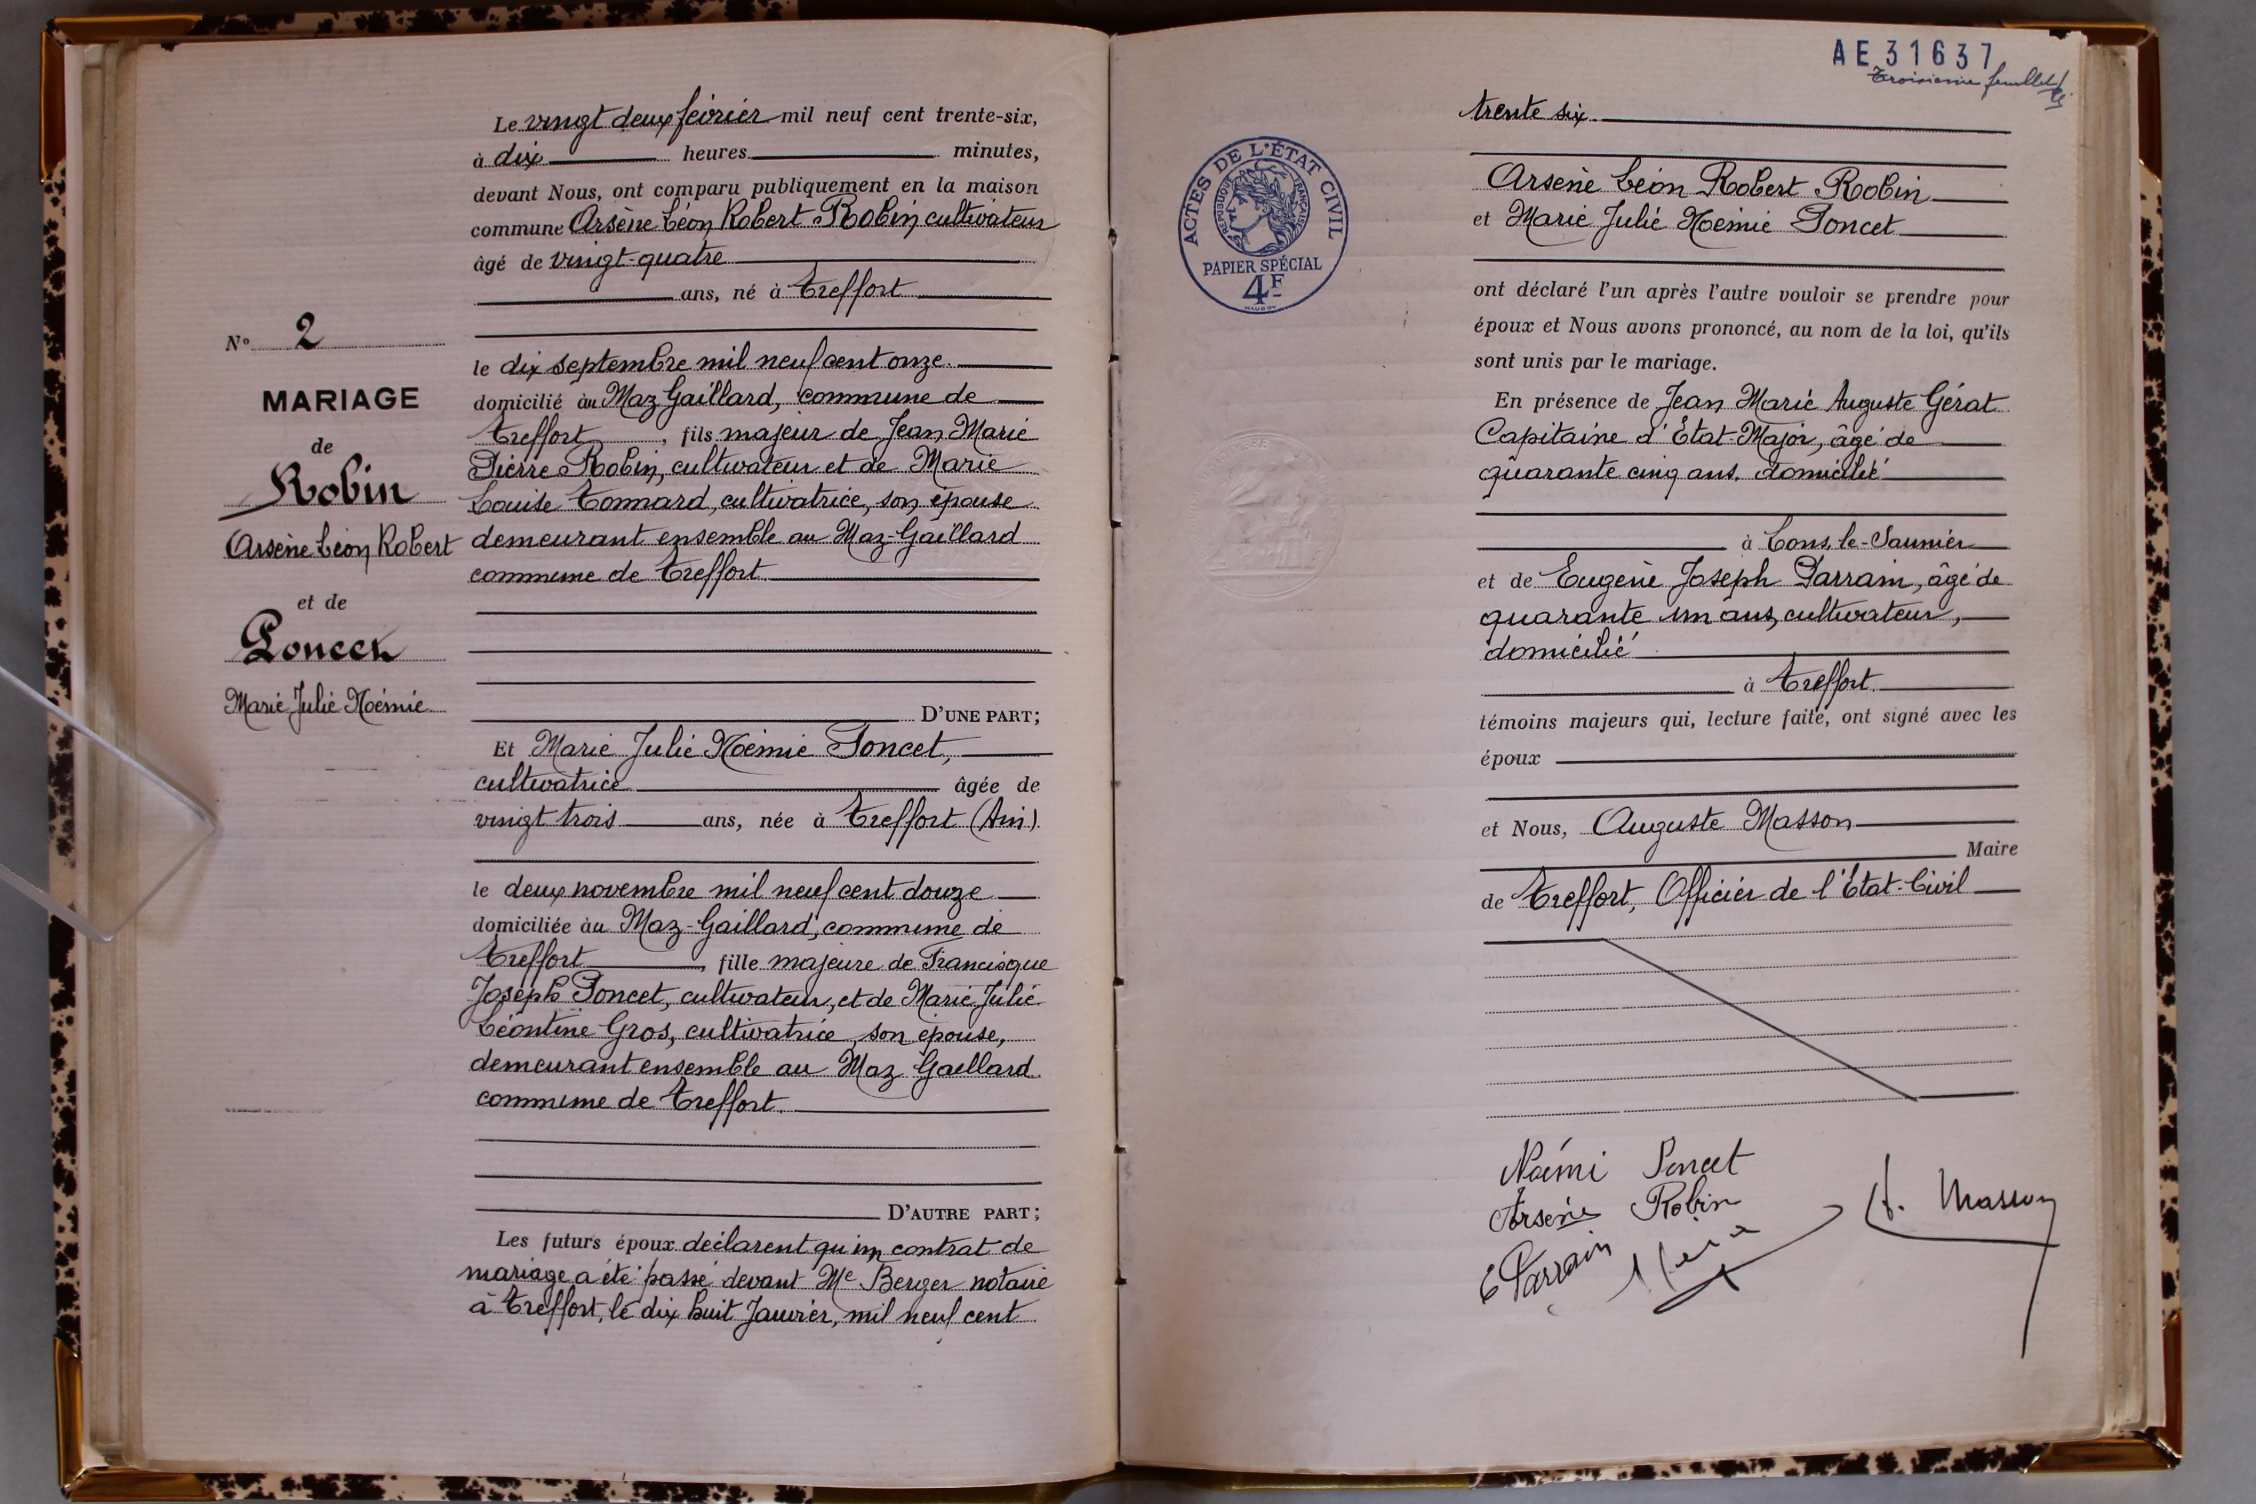 Le vingt deux février mil neuf cent trente-six,
à dix heures minutes,
devant Nous, ont comparu publiquement en la maison
commune Arsène Léon Robert Robin, cultivateur
âgé de vingt-quatre
ans, né à Treffort
le dix septembre mil neuf cent onze
domicilié au Maz Gaillard, commune de
Treffort, fils majeur de Jean Marie
Pierre Robin, cultivateur et de Marie
Louise Tonnard, cultivatrice, son épouse
demeurant ensemble au Maz-Gaillard
commune de Treffort
D'UNE PART;
Et Marie Julie Noémie Poncet,
cultivatrice âgée de
vingt trois ans, née à Treffort (Ain)
le deux novembre mil neuf cent douze
domiciliée au Maz-Gaillard, commune de
Treffort, fille majeure de Francisque
Joseph Poncet, cultivateur, et de Marie Julie
Léontine Gros, cultivatrice, son épouse,
demeurant ensemble au Maz Gaillard
commune de Treffort
D'AUTRE PART;
Les futurs époux déclarent qu'un contrat de
mariage a été passé devant Me Berger notaire
à Treffort, le dix huit Janvier, mil neuf cent
No 2
MARIAGE
de
Robin
Arsène Léon Robert
et de
Poncet
Marie Julie Noémie
AE 31637
troisième feuillet
trente six
ACTES DE L'ÉTAT CIVIL
RÉPUBLIQUE FRANÇAISE
PAPIER SPÉCIAL
4F
Arsène Léon Robert Robin
et Marie Julie Noémie Poncet
ont déclaré l'un après l'autre vouloir se prendre pour
époux et Nous avons prononcé, au nom de la loi, qu'ils
sont unis par le mariage.
En présence de Jean Marie Auguste Gérat
Capitaine d'État-Major, âgé de
quarante cinq ans, domicilié
à Lons-le-Saunier
et de Eugène Joseph Parrain, âgé de
quarante un ans, cultivateur,
domicilié
à Treffort
témoins majeurs qui, lecture faite, ont signé avec les
époux
et Nous, Auguste Masson
Maire
de Treffort, Officier de l'État-Civil
Noémi Poncet
Arsène Robin
E Parrain
A. Masson